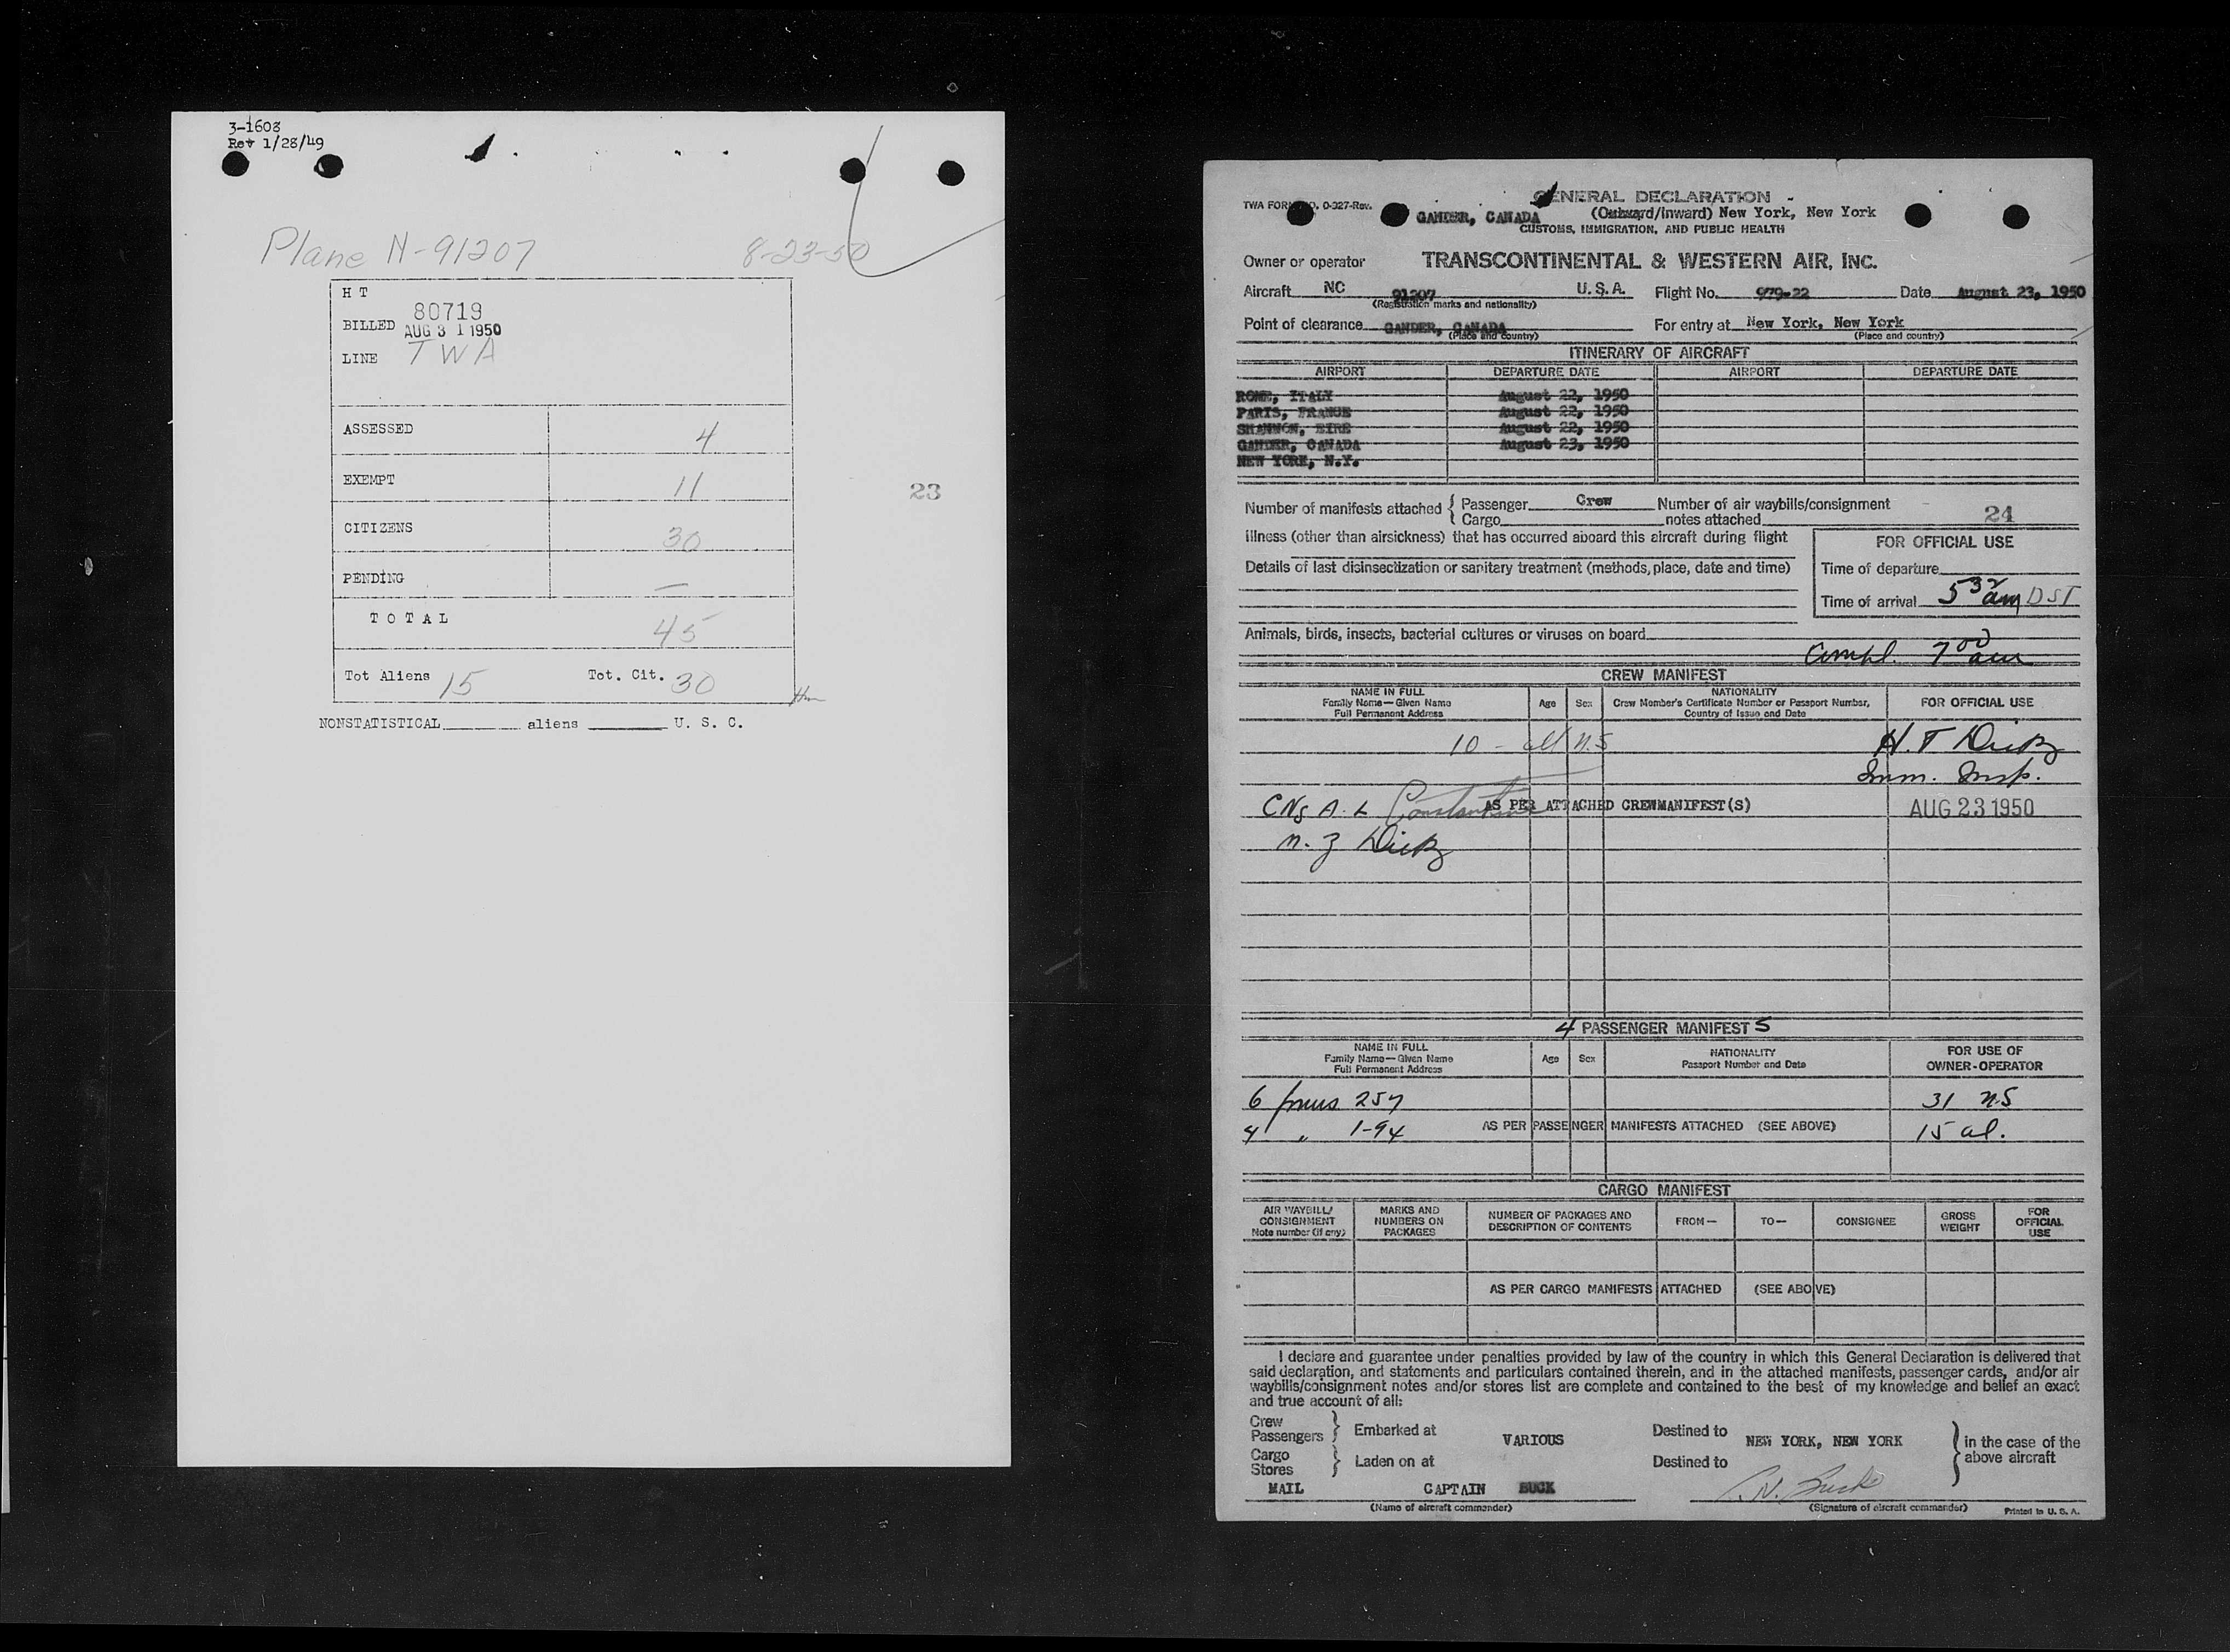 3-1608
Rev 1/28/49
Plane N-91207 8-23-50
H T
80719
BILLED AUG 31 1950
LINE TWA
ASSESSED 4
EXEMPT 11
23
CITIZENS 30
PENDING —
T O T A L 45
Tot Aliens 15 Tot. Cit. 30
NONSTATISTICAL aliens U. S. C.
GENERAL DECLARATION
TWA FORM NO. 0-327-Rev.
GANDER, CANADA (Outward/Inward) New York, New York
CUSTOMS, IMMIGRATION, AND PUBLIC HEALTH
Owner or operator TRANSCONTINENTAL & WESTERN AIR, INC.
Aircraft NC 91207 U. S. A. Flight No. 979-22 Date August 23, 1950
(Registration marks and nationality)
Point of clearance GANDER, CANADA For entry at New York, New York
(Place and country) (Place and country)
ITINERARY OF AIRCRAFT
AIRPORT DEPARTURE DATE AIRPORT DEPARTURE DATE
ROME, ITALY August 22, 1950
PARIS, FRANCE August 22, 1950
SHANNON, EIRE August 22, 1950
GANDER, CANADA August 23, 1950
NEW YORK, N.Y.
Number of manifests attached { Passenger Crew Number of air waybills/consignment
Cargo notes attached 24
Illness (other than airsickness) that has occurred aboard this aircraft during flight
FOR OFFICIAL USE
Details of last disinsectization or sanitary treatment (methods, place, date and time)
Time of departure
Time of arrival 5 32 am DST
Animals, birds, insects, bacterial cultures or viruses on board
Compl. 7 00 am
CREW MANIFEST
NAME IN FULL
Family Name—Given Name
Full Permanent Address
Age Sex
NATIONALITY
Crew Member's Certificate Number or Passport Number,
Country of Issue and Date
FOR OFFICIAL USE
10 - all N.S
H. T
Imm. Insp.
A. L Constantine AS PER ATTACHED CREWMANIFEST(S) AUG 23 1950
4 PASSENGER MANIFEST S
NAME IN FULL
Family Name—Given Name
Full Permanent Address
Age Sex
NATIONALITY
Passport Number and Date
FOR USE OF
OWNER-OPERATOR
6 forms 257 31 NS
4 " 1-94 AS PER PASSENGER MANIFESTS ATTACHED (SEE ABOVE) 15 al.
CARGO MANIFEST
AIR WAYBILL/
CONSIGNMENT
Note number (if any)
MARKS AND
NUMBERS ON
PACKAGES
NUMBER OF PACKAGES AND
DESCRIPTION OF CONTENTS
FROM— TO— CONSIGNEE
GROSS
WEIGHT
FOR
OFFICIAL
USE
AS PER CARGO MANIFESTS ATTACHED (SEE ABOVE)
I declare and guarantee under penalties provided by law of the country in which this General Declaration is delivered that
said declaration, and statements and particulars contained therein, and in the attached manifests, passenger cards, and/or air
waybills/consignment notes and/or stores list are complete and contained to the best of my knowledge and belief an exact
and true account of all:
Crew
Passengers } Embarked at VARIOUS Destined to NEW YORK, NEW YORK } in the case of the
Cargo
Stores } Laden on at Destined to above aircraft
MAIL CAPTAIN BUCK
(Name of aircraft commander) (Signature of aircraft commander) Printed in U. S. A.